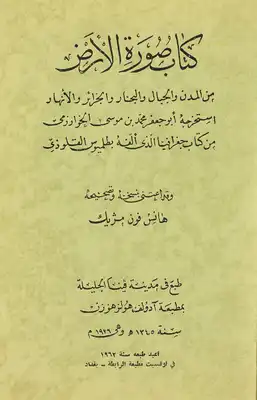 كتاب صورة الأرض
من المدن والجبال والبحار والجزائر والأنهار
استخرجه أبو جعفر محمد بن موسى الخوارزمي
من كتاب جغرافيا الذي ألفه بطلميوس القلوذي
وقد اعتنى بنسخه وتصحيحه
هانس فون مژيك
طبع في مدينة ڤينا الجليلة
بمطبعة آدولف هولزهوزن
سنة ١٣٤٥ هـ وهي ١٩٢٦ م
اعيد طبعه سنة ١٩٦٢
في اوفسيت مطبعة الرابطة - بغداد